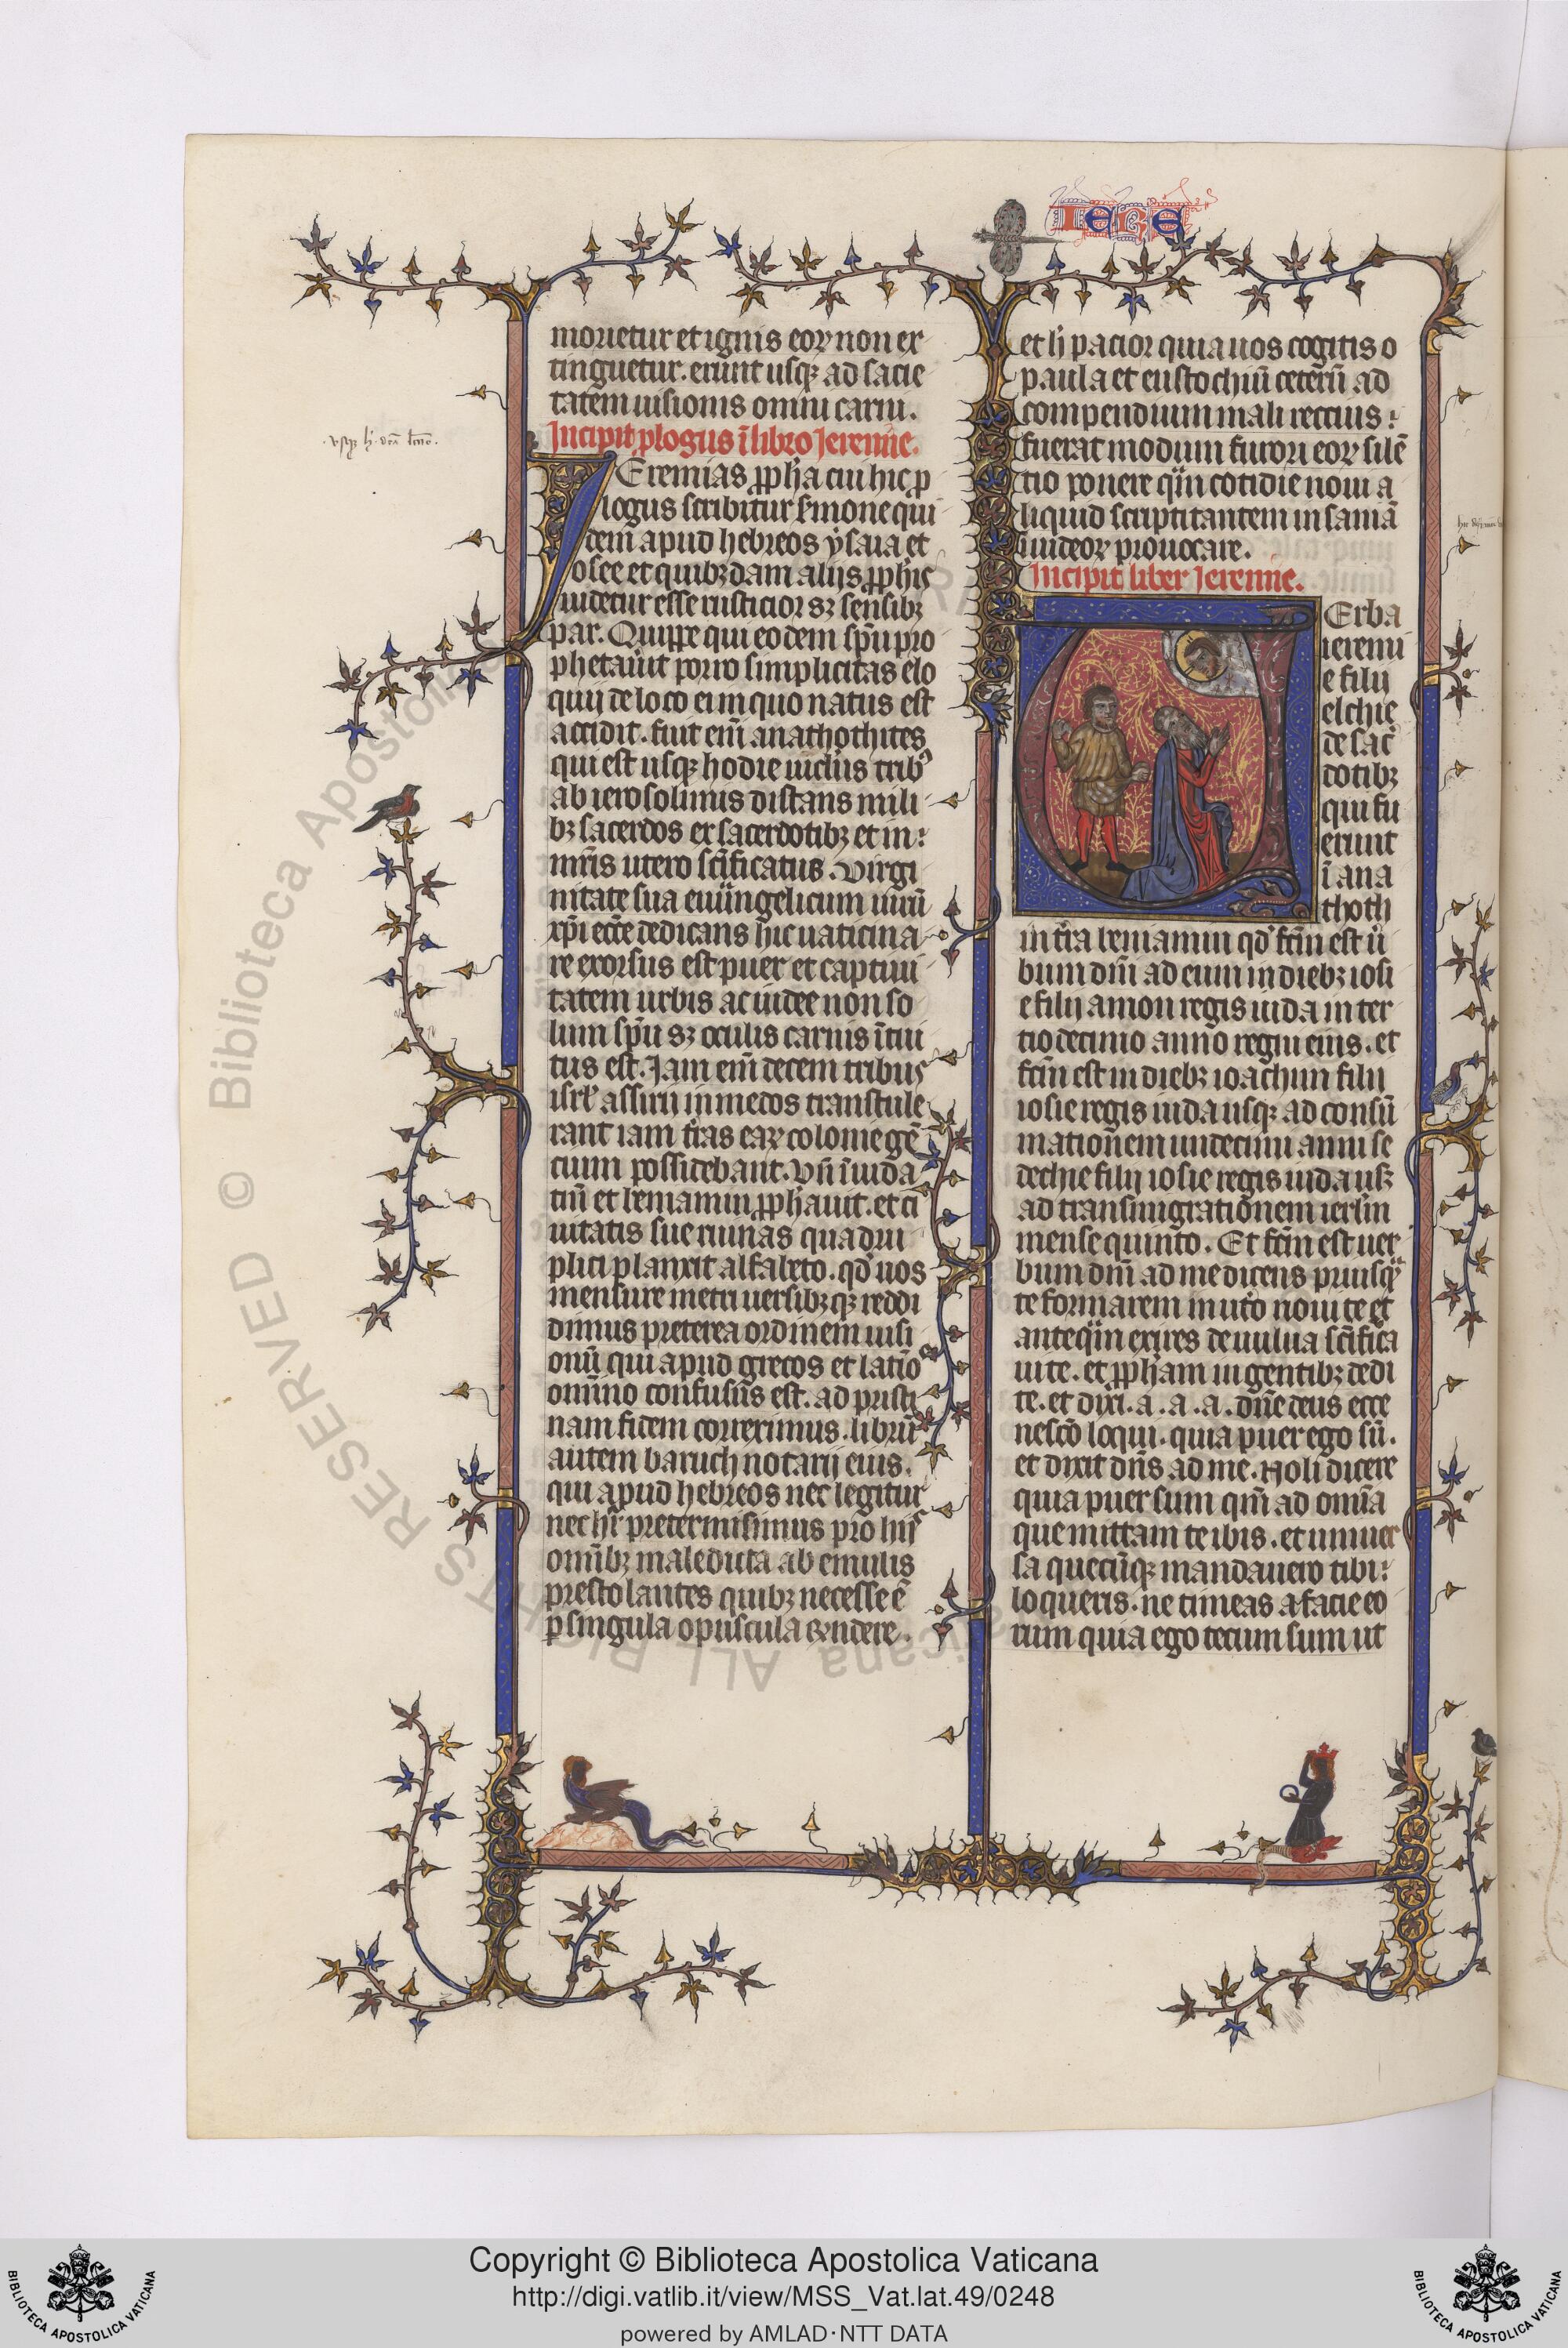 IERE
morietur et ignis eoꝝ non ex
tinguetur. erunt usqꝫ ad sacie
tatem uisionis omni carni.
Incipit ꝓlogus ĩ libro Ieremie.
.vsqꝫ h̓.
Ieremias ꝓpħa cui hic ꝓ
logus scribitur ẜmone qui
dem apud hebreos ẏsaia et
osee et quibꝫdam alijs ꝓpħis
uidetur esse rusticior sꝫ sensibꝫ
par. Quippe qui eodem sp̃u pro
phetauit porro simplicitas elo
quij de loco ei in quo natus est
accidit. fuit em̃ anathothites
qui est usqꝫ hodie uiclus tribꝰ
ab ierosolimis distans mili
bꝫ sacerdos ex sacerdotibꝫ et in:
mr̃is utero sc̃ificatus. Virgi
nitate sua euu̾ngelicum uirũ
xp̃i ecc̃e dedicans hic uaticina
re exorsus est puer et captiui
tatem urbis ac iudee non so
lum sp̃u sꝫ oculis carnis ĩtui
tus est. Iam em̃ decem tribus
isrł assirij in medos transtule
rant iam t̃ras eaꝝ colonie gẽ
cium possidebant. Vñ ĩ iuda
tm̃ et beniamin ꝓpħauit. et ci
uitatis sue ruinas quadru
plici planxit alfabeto. qd̾ nos
mensure metri uersibꝫqꝫ reddi
dimus preterea ordinem uisi
onũ qui apud grecos et latīoꝰ
omĩno confusus est. ad pristi
nam fidem correximus. librũ
autem baruch notarij eius.
qui apud hebreos nec legitur
nec hr̃ pretermisimus pro hijs
omĩbꝫ maledicta ab emulis
prestolantes quibꝫ necesse ẽ
ꝑ singula opuscula rñdere.
et h̓ pacior quia uos cogitis o
paula et eustochiũ ceterũ ad
compendium mali rectius:
fuerat modum furori eoꝝ silẽ
tio ponere qu̾m cotidie noui a
liquid scriptitantem insaniã
iudeoꝝ prouocare.
Incipit liber Ieremie.
Verba
ieremi
e filij
elchie
de sac̾
dotibꝫ
qui fu
erunt
ĩ ana
thoth
in t̃ra beniamin qd̾ fc̃m est u̾
bum dñi ad eum in diebꝫ iosi
e filij amon regis iuda in ter
tio decimo anno regni eius. et
fc̃m est in diebꝫ ioachim filij
iosie regis iuda usqꝫ ad consũ
mationem undecimi anni se
dechie filij iosie regis iuda usqꝫ
ad transmigrationem ierlm̃
mense quinto. Et fc̃m est uer
bum dñi ad me dicens priusqᵃ
te formarem in ut̾o noui te et
anteqᵃm exires de uulua sc̃ifica
ui te. et ꝓpħam in gentibꝫ dedi
te. et dixi. a. a. a. dñe deus ecce
nescõ loqui. quia puer ego sũ.
et dixit dñs ad me. Noli dicere
quia puer sum qm̃ ad omĩa
que mittam te ibis. et uniuer
sa quecũqꝫ mandauero tibi:
loqueris. ne timeas a facie eo
rum quia ego tecum sum ut
© Biblioteca Apostolica Vaticana ALL RIGHTS RESERVED
Copyright © Biblioteca Apostolica Vaticana
http://digi.vatlib.it/view/MSS_Vat.lat.49/0248
powered by AMLAD·NTT DATA
BIBLIOTECA APOSTOLICA VATICANA
BIBLIOTECA APOSTOLICA VATICANA